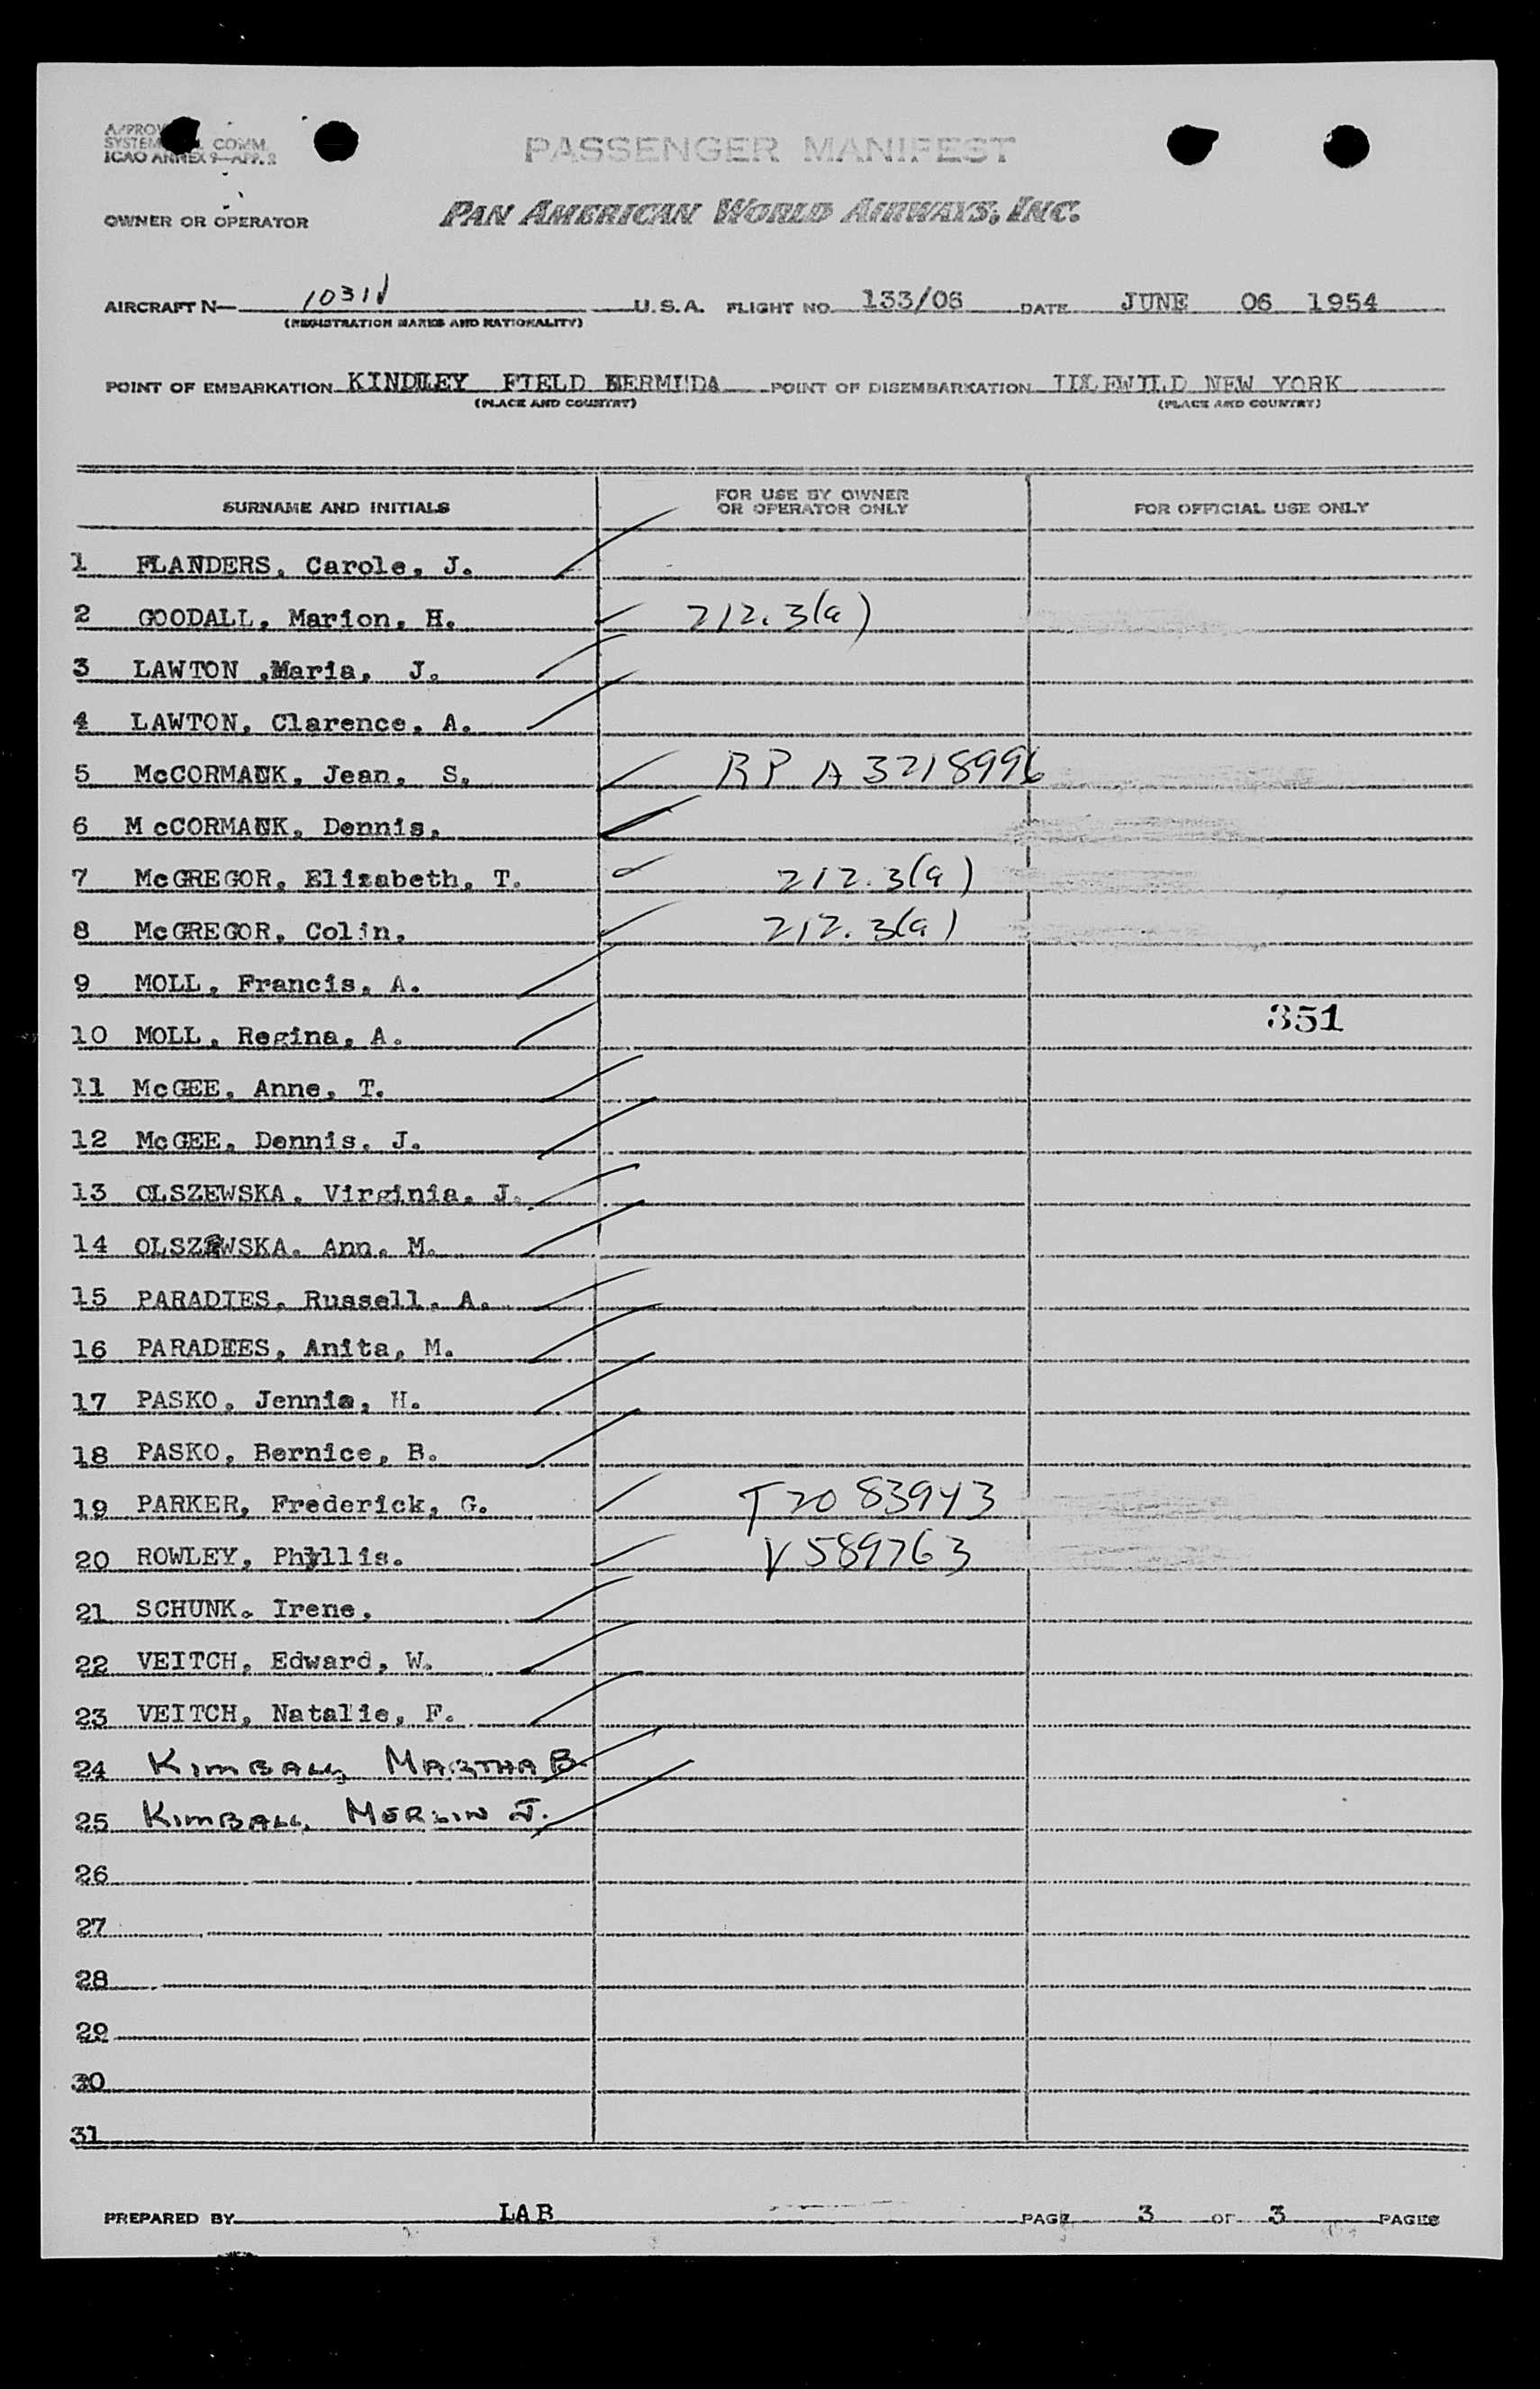 PASSENGER MANIFEST
ICAO ANNEX 9—APP. 2
OWNER OR OPERATOR PAN AMERICAN WORLD AIRWAYS, INC.
AIRCRAFT N— U.S.A. FLIGHT NO. 133/06 DATE JUNE 06 1954
(REGISTRATION MARKS AND NATIONALITY)
POINT OF EMBARKATION KINDLEY FIELD BERMUDA POINT OF DISEMBARKATION IDLEWILD NEW YORK
(PLACE AND COUNTRY) (PLACE AND COUNTRY)
SURNAME AND INITIALS FOR USE BY OWNER OR OPERATOR ONLY FOR OFFICIAL USE ONLY
1 FLANDERS, Carole, J.
2 GOODALL, Marion, H. 212.3(a)
3 LAWTON ,Maria, J.
4 LAWTON, Clarence, A.
5 McCORMACK, Jean, S. RP A3218996
6 McCORMACK, Dennis,
7 McGREGOR, Elizabeth, T. 212.3(a)
8 McGREGOR, Colin, 212.3(a)
9 MOLL, Francis, A.
10 MOLL, Regina, A. 351
11 McGEE, Anne, T.
12 McGEE, Dennis, J.
13 OLSZEWSKA, Virginia, J.
14 OLSZEWSKA. Ann. M.
15 PARADIES, Russell, A.
16 PARADIES, Anita, M.
17 PASKO, Jennie, H.
18 PASKO, Bernice, B.
19 PARKER, Frederick, G. T2083943
20 ROWLEY, Phyllis. V589763
21 SCHUNK. Irene,
22 VEITCH, Edward, W.
23 VEITCH, Natalie, F.
24 KIMBALL, MARTHA B
25 KIMBALL, MERLIN J.
26
27
28
29
30
31
PREPARED BY LAB PAGE 3 OF 3 PAGES